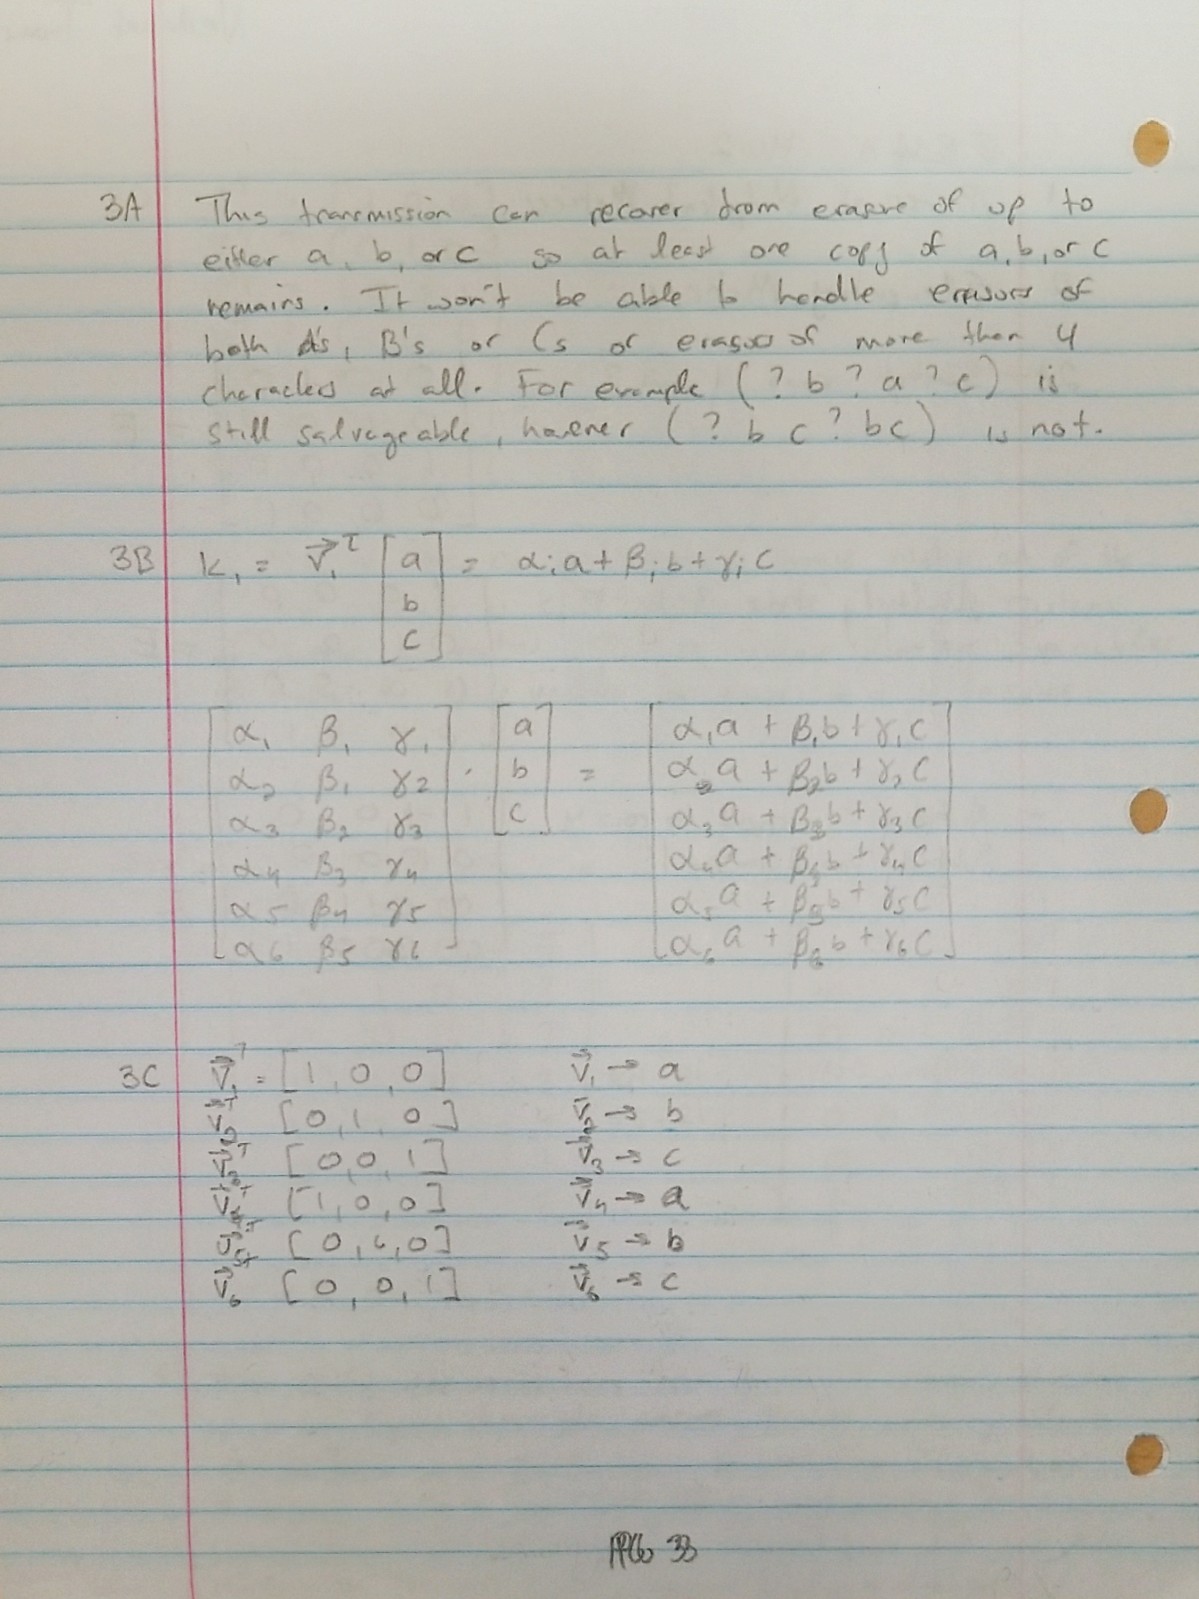 3A This transmission can recover from erasure of up to
either a, b, or c so at least one copy of a, b, or c
remains. It won't be able to handle erasures of
both A's, B's or Cs or erasures of more then 4
characters at all. For example (? b ? a ? c) is
still salvageable, however (? b c ? b c) is not.
3B K₁ = v⃗₁ᵀ [a b c] = αᵢa + βᵢb + γᵢc
α₁ β₁ γ₁ a α₁a + β₁b + γ₁c
α₂ β₁ γ₂ · b = α₂a + β₂b + γ₂c
α₃ β₂ γ₃ c α₃a + β₃b + γ₃c
α₄ β₃ γ₄ α₄a + β₄b + γ₄c
α₅ β₄ γ₅ α₅a + β₅b + γ₅c
α₆ β₅ γ₆ α₆a + β₆b + γ₆c
3C v⃗₁ᵀ = [1, 0, 0] v⃗₁ → a
v⃗₂ᵀ [0, 1, 0] v⃗₂ → b
v⃗₃ᵀ [0, 0, 1] v⃗₃ → c
v⃗₄ᵀ [1, 0, 0] v⃗₄ → a
v⃗₅ᵀ [0, 1, 0] v⃗₅ → b
v⃗₆ᵀ [0, 0, 1] v⃗₆ → c
33